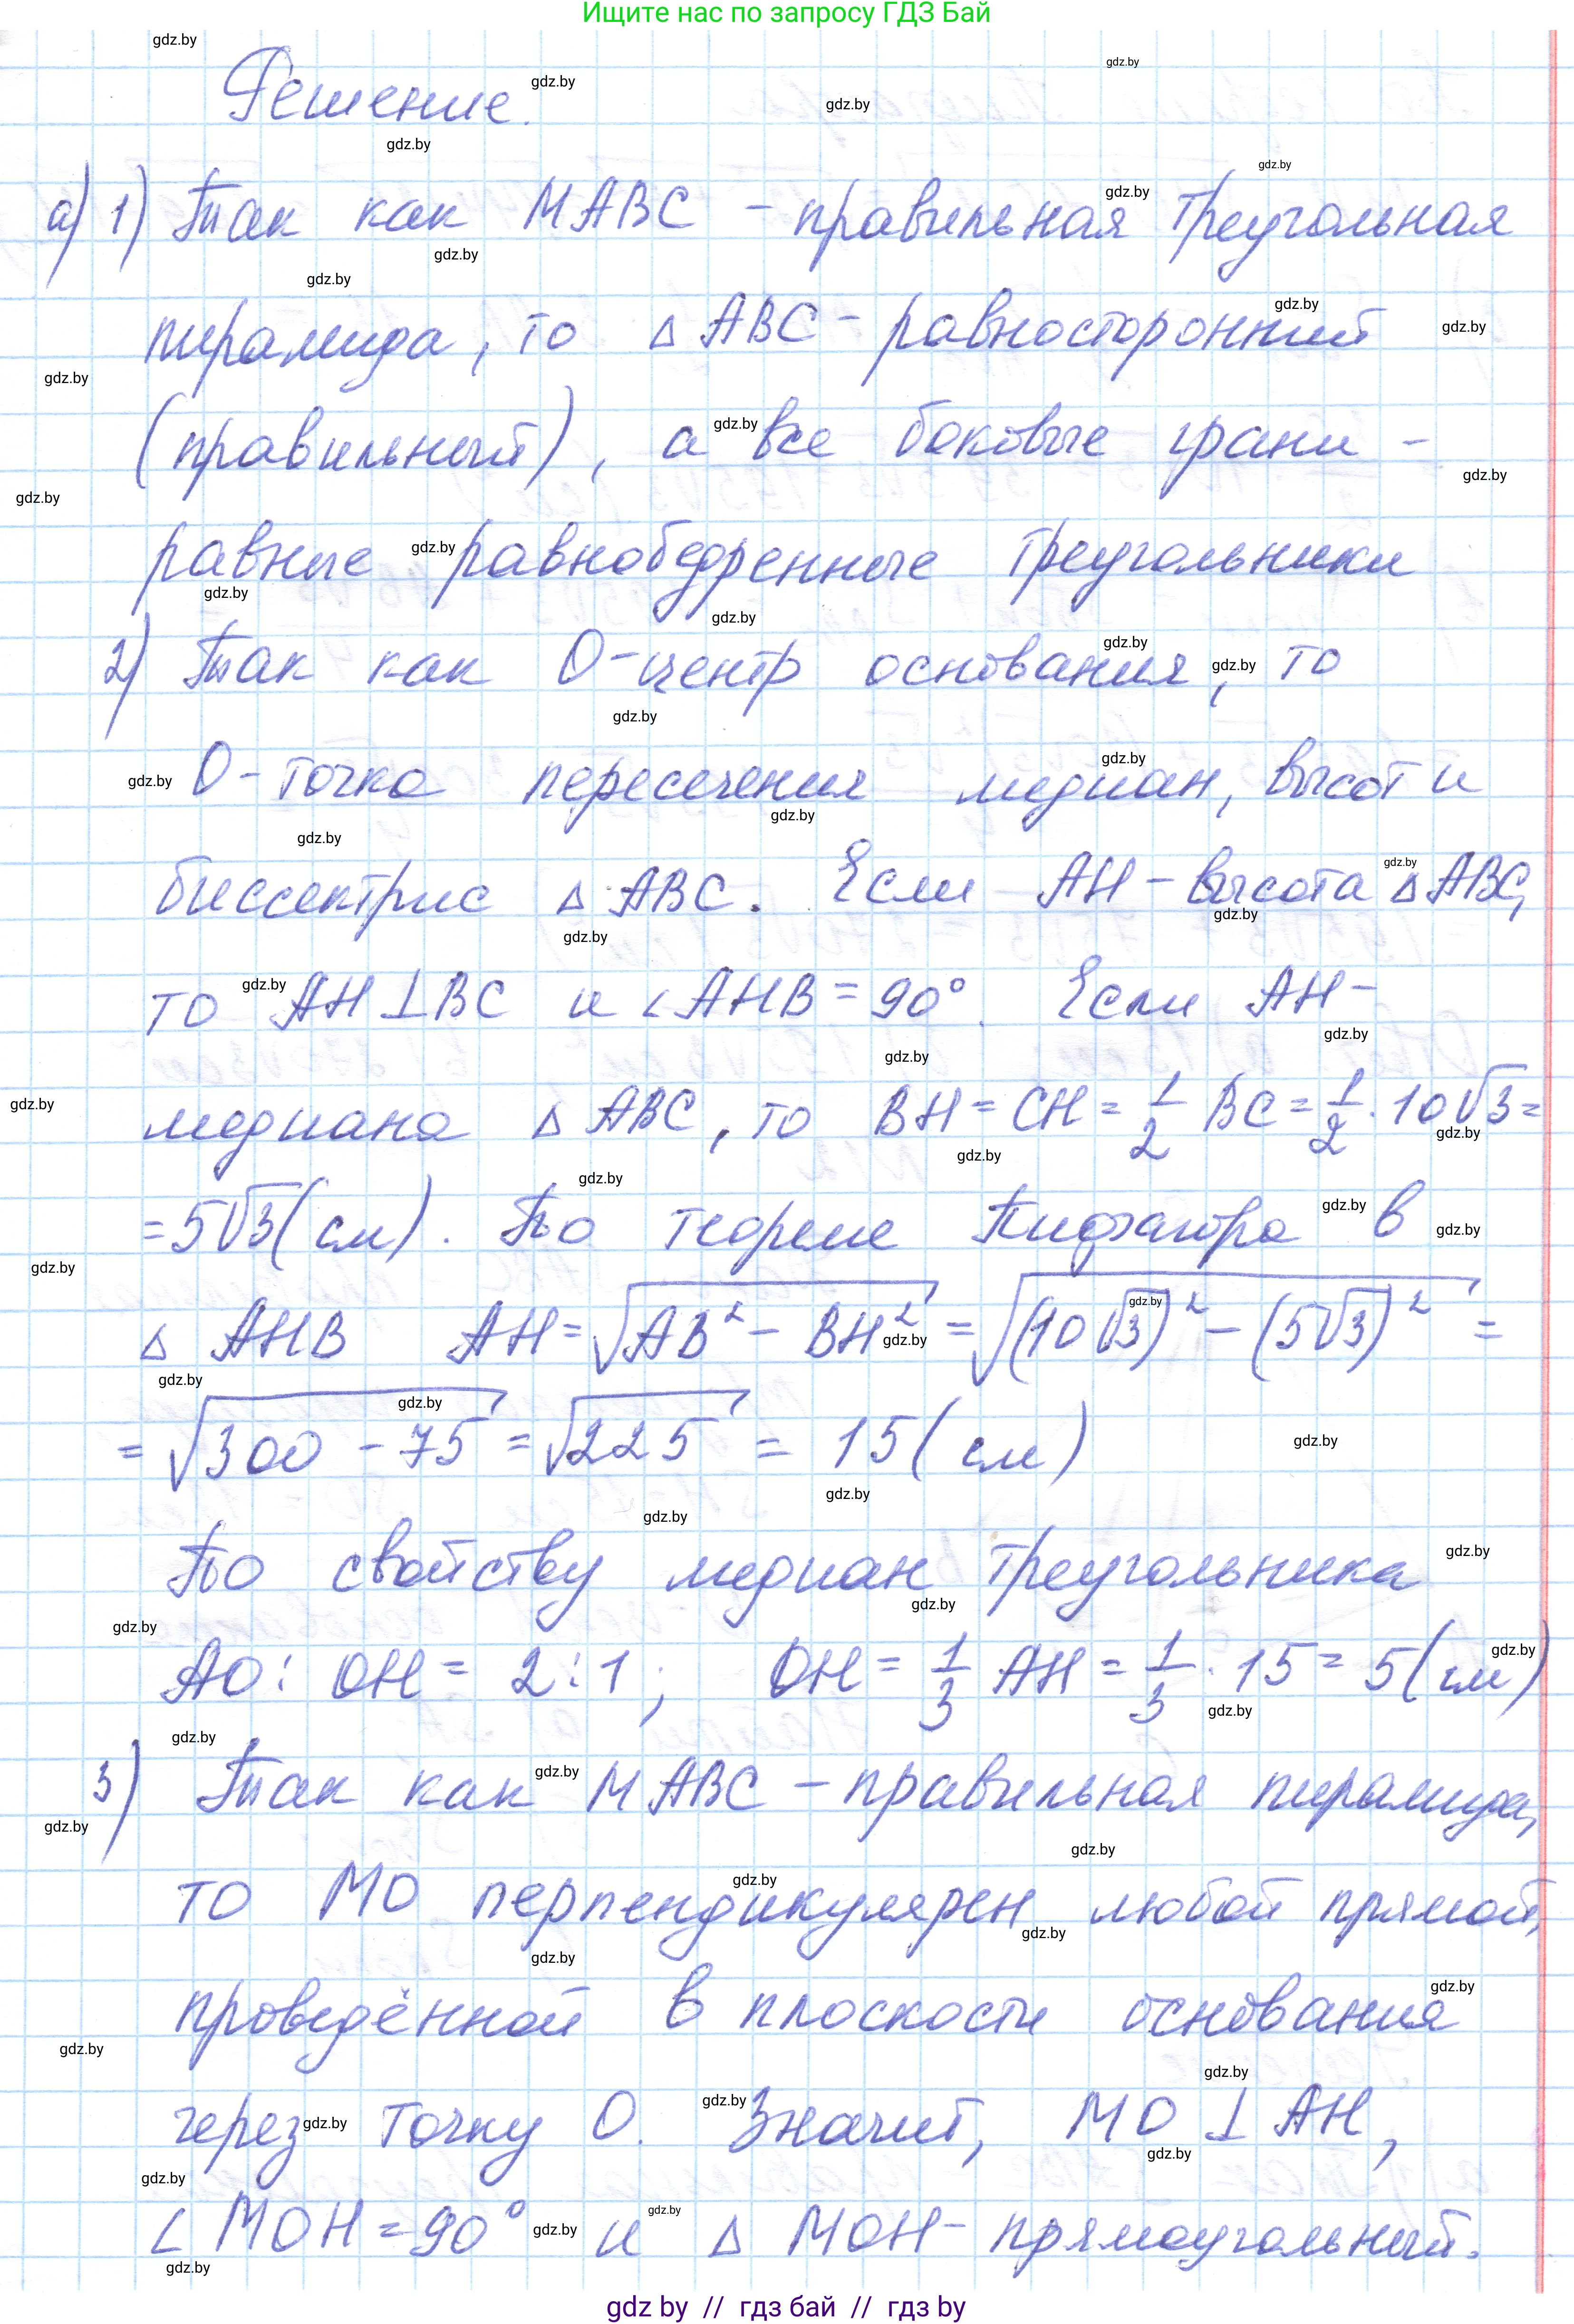 Ищите нас по запросу ГДЗ Бай
Решение.
а) 1) Так как MABC - правильная треугольная
пирамида, то △ ABC - равносторонний
(правильный), а все боковые грани -
равные равнобедренные треугольники
2) Так как O - центр основания, то
O - точка пересечения медиан, высот и
биссектрис △ ABC. Если AH - высота △ ABC,
то AH ⊥ BC и ∠ AHB = 90°. Если AH -
медиана △ ABC, то BH = CH = 1/2 BC = 1/2 · 10√3 =
= 5√3 (см). По теореме Пифагора в
△ AHB AH = √(AB² - BH²) = √((10√3)² - (5√3)²) =
= √(300 - 75) = √225 = 15 (см)
По свойству медиан треугольника
AO : OH = 2 : 1; OH = 1/3 AH = 1/3 · 15 = 5 (см)
3) Так как MABC - правильная пирамида,
то MO перпендикулярен любой прямой,
проведённой в плоскости основания
через точку O. Значит, MO ⊥ AH,
∠ MOH = 90° и △ MOH - прямоугольный.
gdz by // гдз бай // гдз by